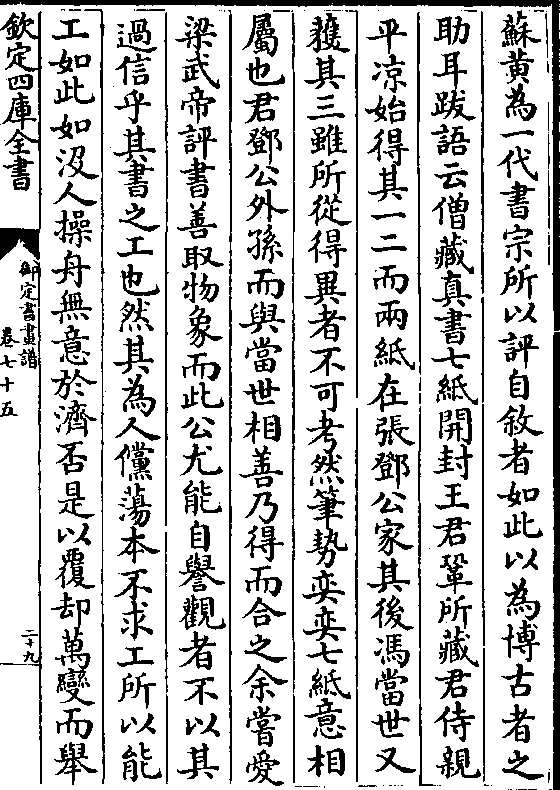 蘇黃為一代書宗所以評自敘者如此以為博古者之
助耳跋語云僧藏真書七紙開封王君鞏所藏君侍親
平凉始得其一二而兩紙在張鄧公家其後馮當世又
獲其三雖所從得異者不可考然筆勢奕奕七紙意相
屬也君鄧公外孫而與當世相善乃得而合之余嘗愛
梁武帝評書善取物象而此公尤能自譽觀者不以其
過信乎其書之工也然其為人儻蕩本不求工所以能
工如此如沒人操舟無意於濟否是以覆却萬變而舉
欽定四庫全書
御定書畫譜
卷七十五
二十九